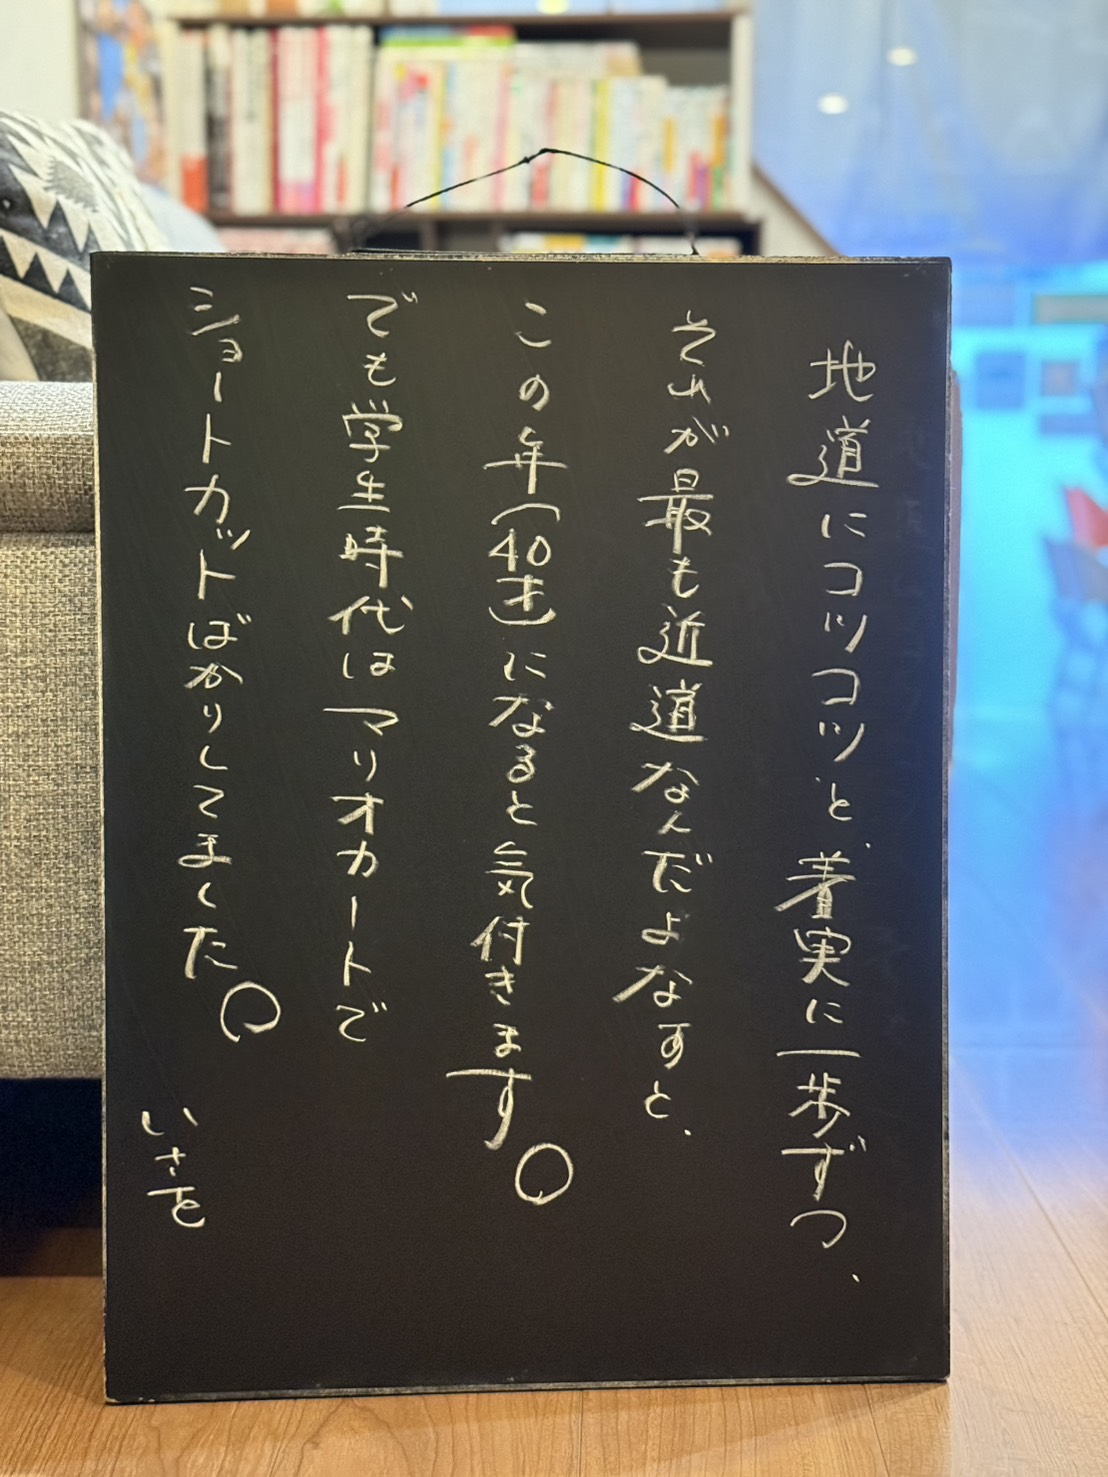 地道にコツコツと、着実に一歩ずつ、
それが最も近道なんだよなすと、
この年(40才)になると気付きます。
でも学生時代はマリオカートで
ショートカットばかりしてました。
いさを